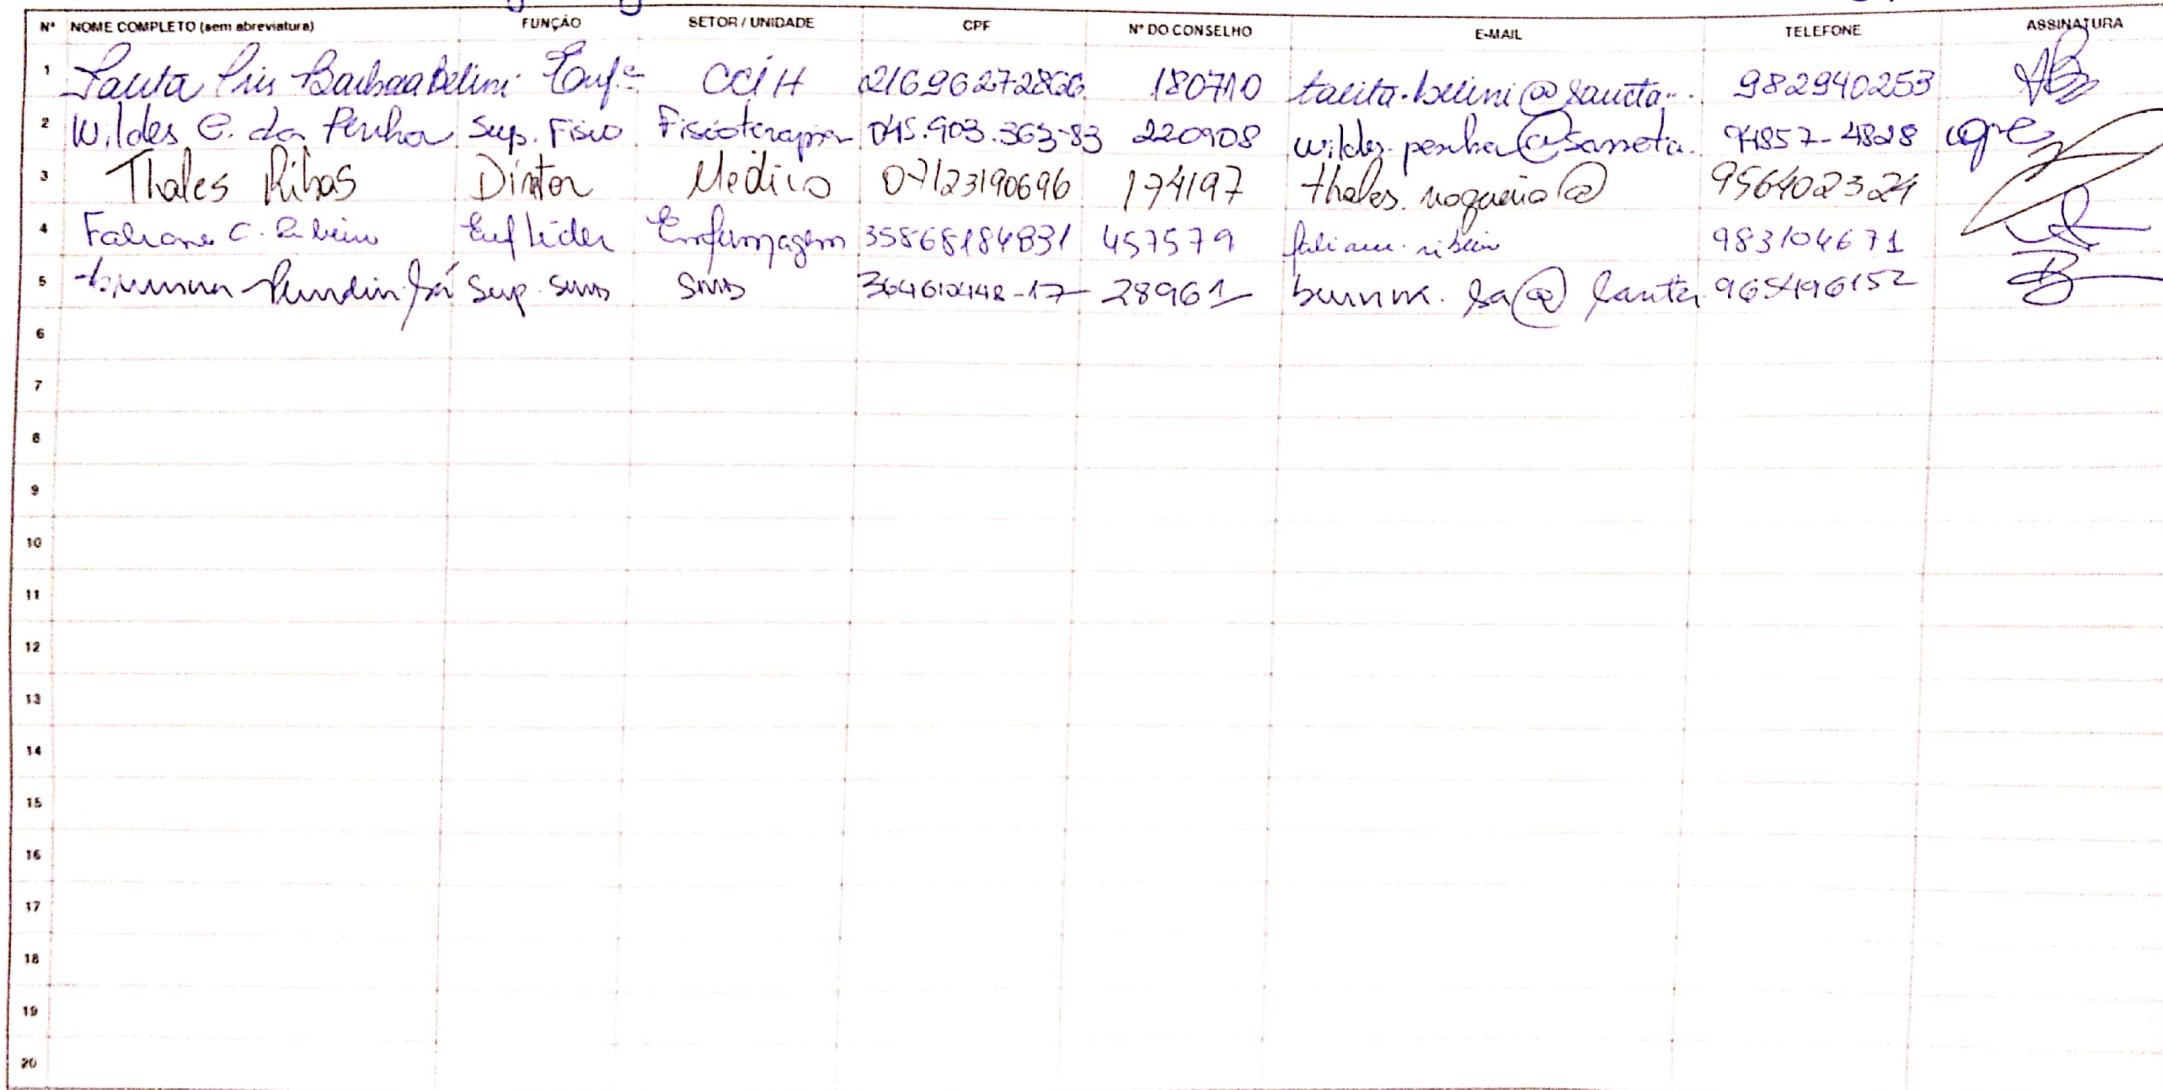 Nº NOME COMPLETO (sem abreviatura) FUNÇÃO SETOR / UNIDADE CPF Nº DO CONSELHO E-MAIL TELEFONE ASSINATURA
1 Barbosa Belini Enfª CCIH 21696272866 180710 talita.belini@sancta.. 982940253
2 Wildes C. da Penha Sup. Fisio Fisioterapia 045.903.363-83 220908 wildes.penha@sancta. 94857-4828
3 Thales Ribas Diretor Médico 07123190696 174197 thales.nogueira@ 956402324
4 Fabiane C. Ribeiro Enf Líder Enfermagem 35868184831 457579 fabiane.ribeiro 983104671
5 Sá Sup. 28961 sa@
6
7
8
9
10
11
12
13
14
15
16
17
18
19
20